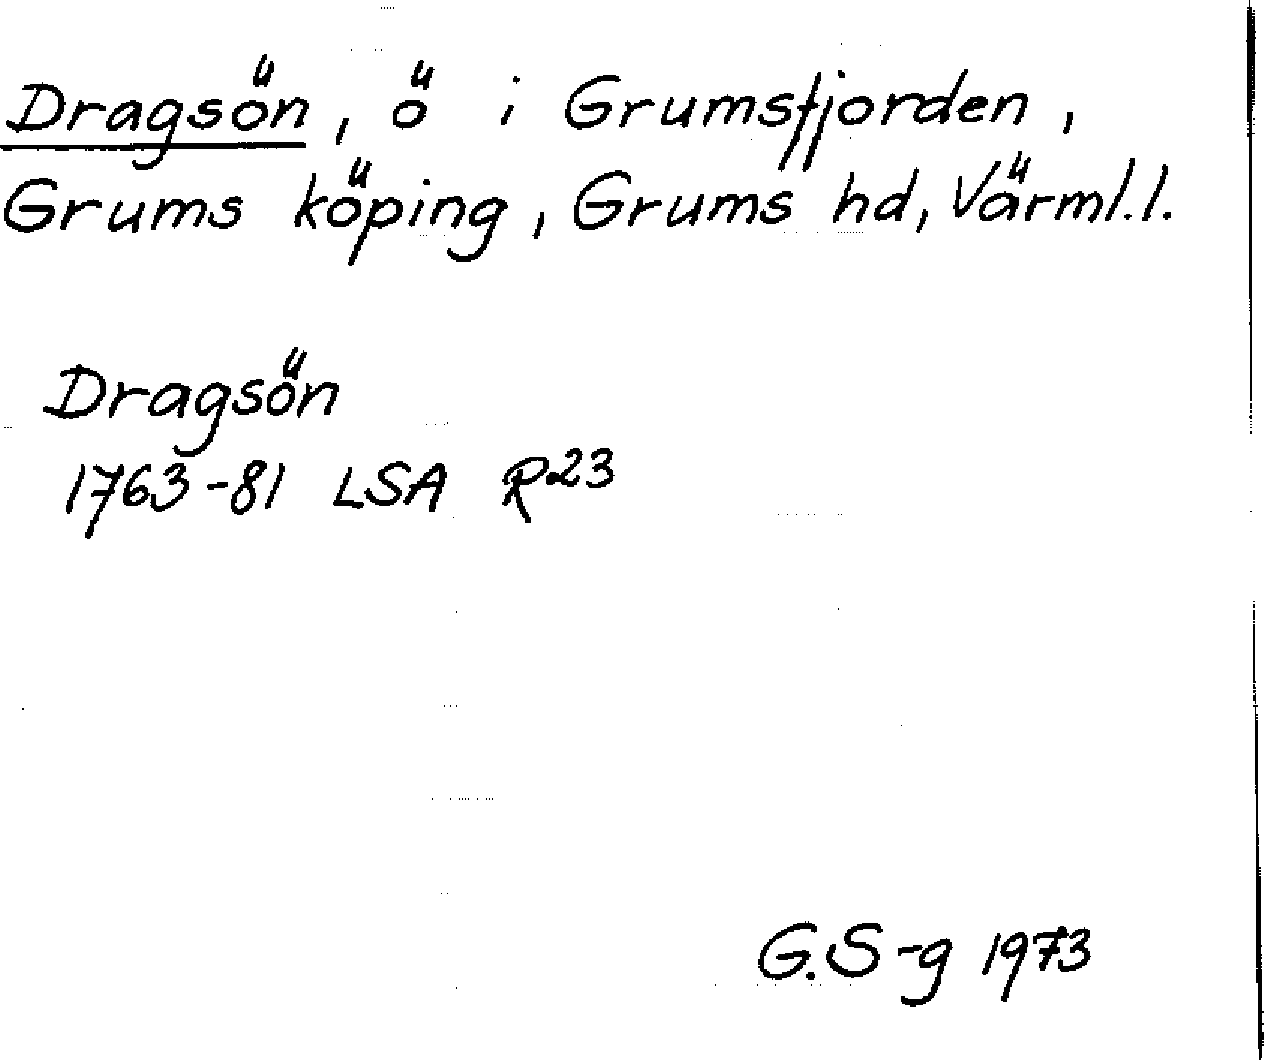 Dragsön, ö i Grumsfjorden,
Grums köping, Grums hd, Värml. l.
Dragsön
1763-81 LSA R23
G.S-g 1973